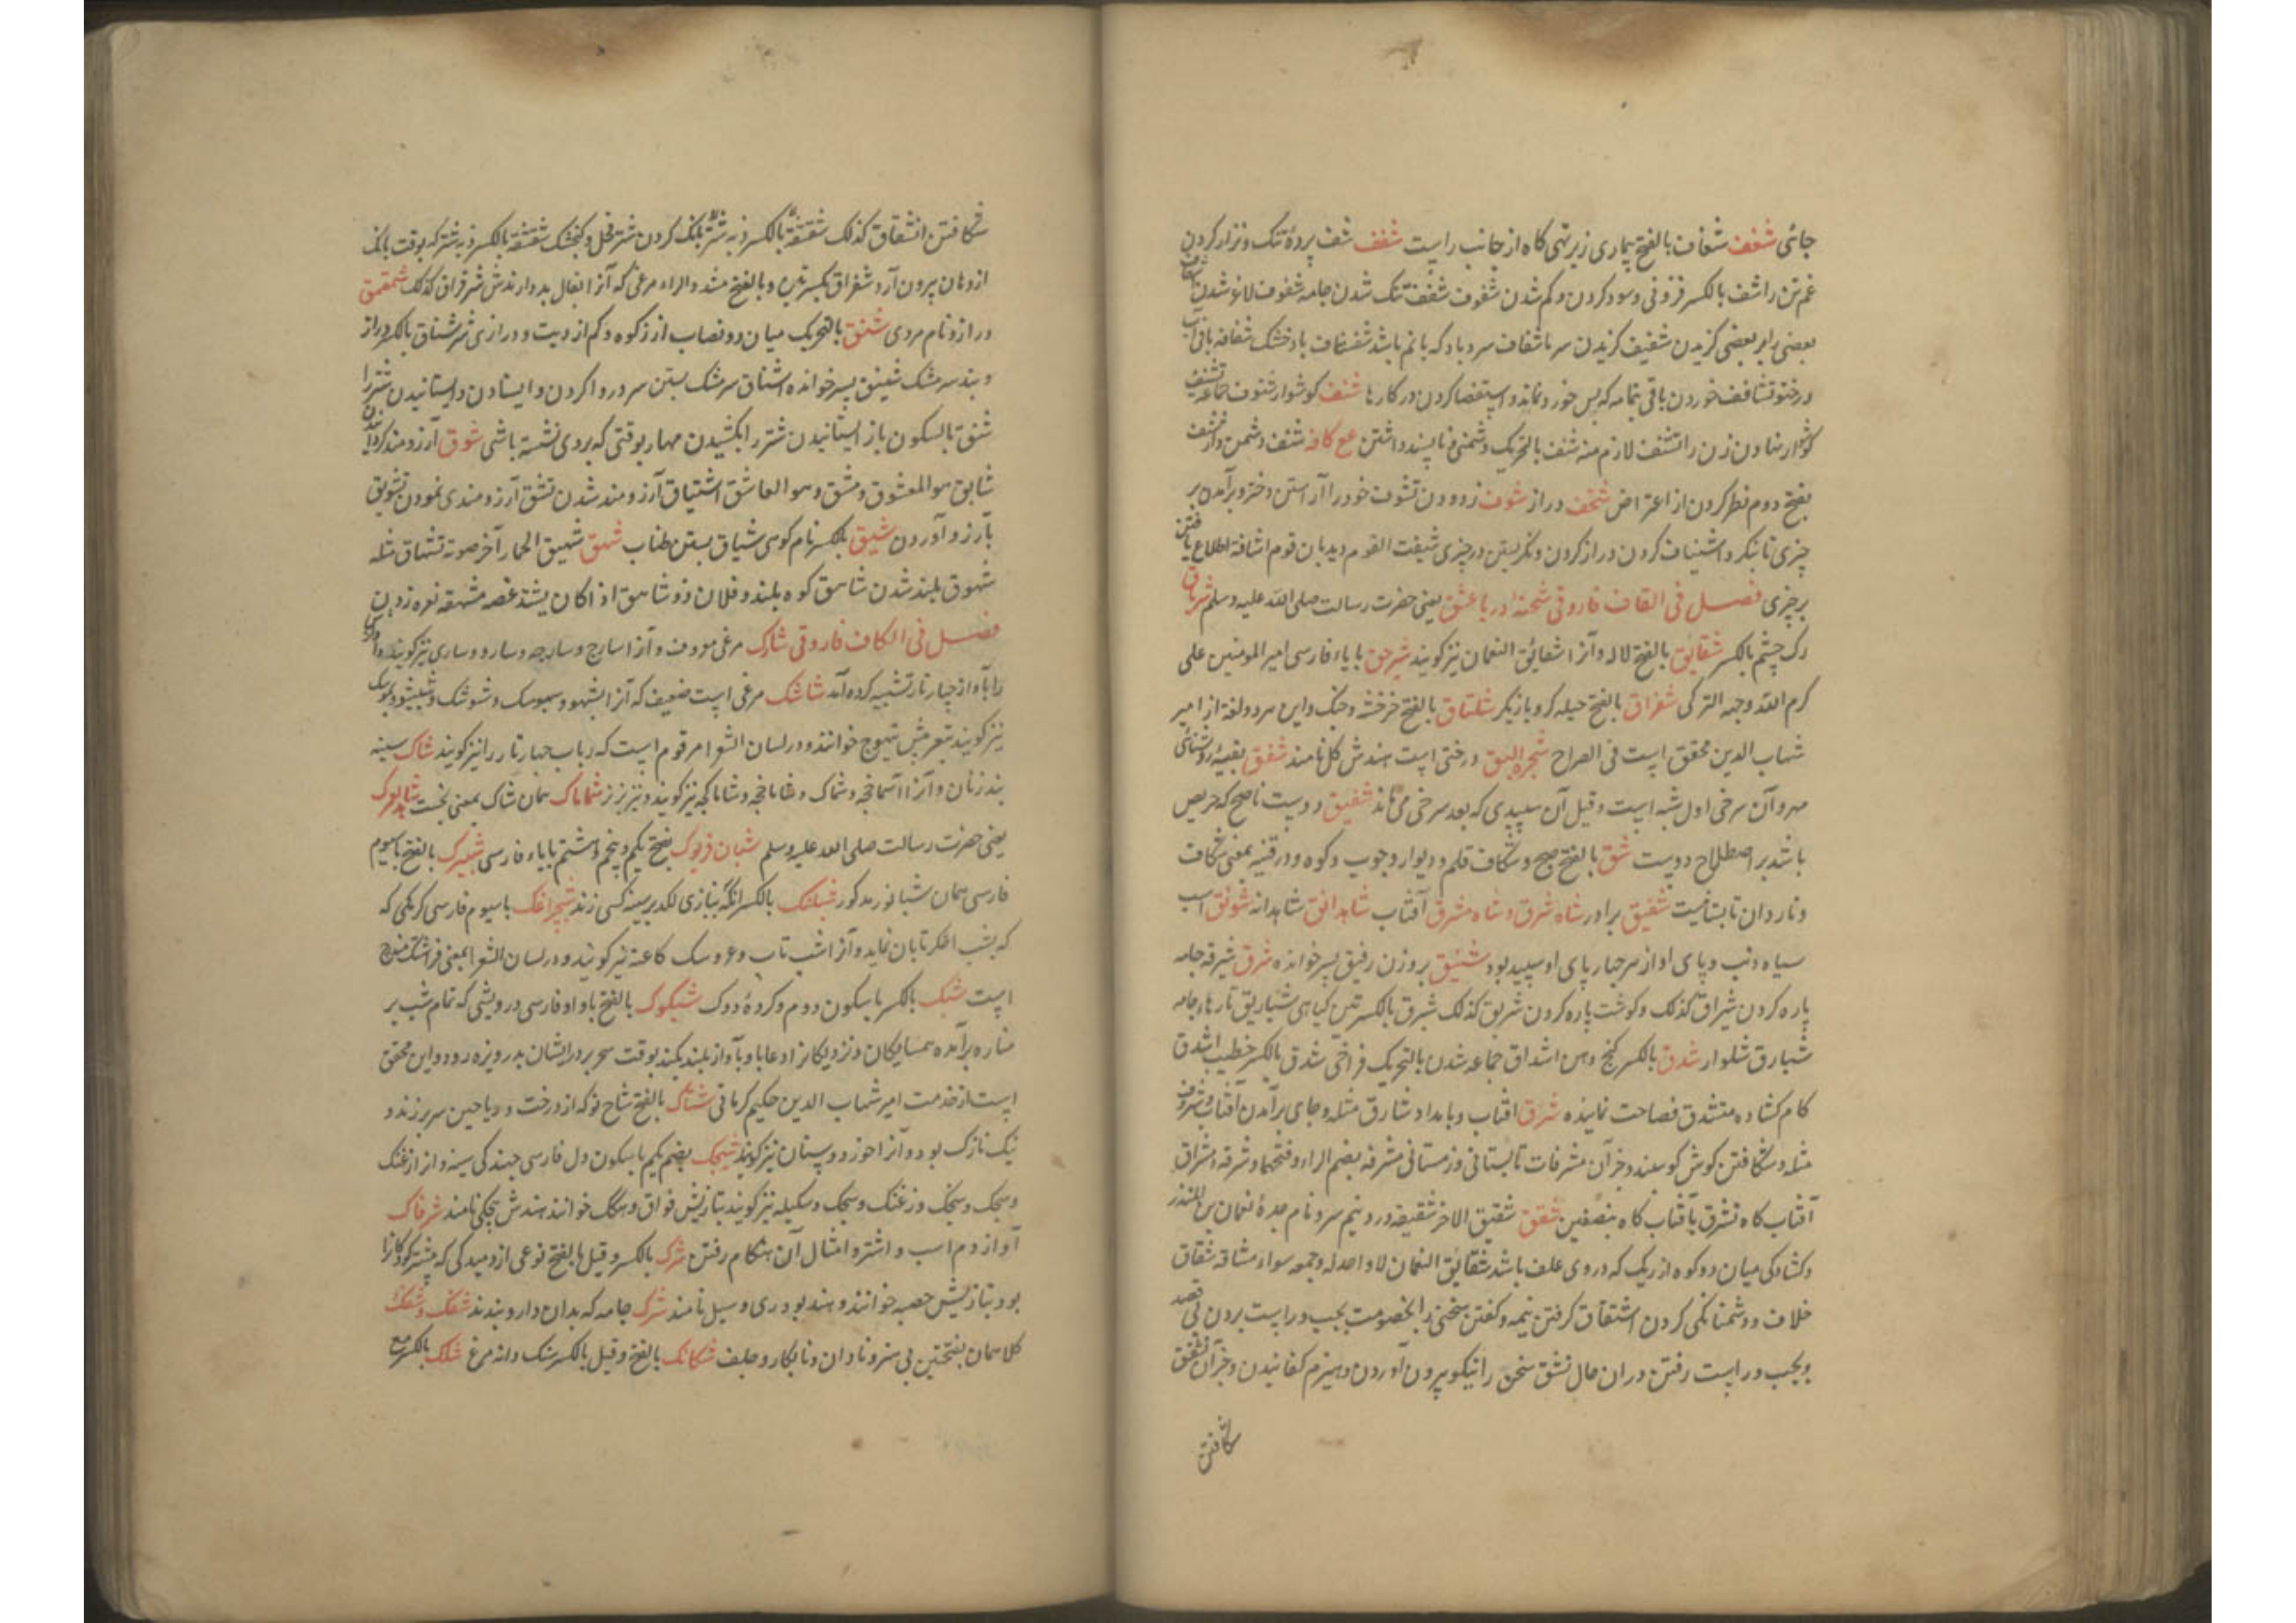 جائی شغف شغاف بالفتح بیماری زیر تهی کاه از جانب راست شفف شف پردهٔ تنک و نزار کردن
غم تن را شف بالکسر فزونی و سود کردن و کم شدن شفوف شفف تنک شدن جامه شفوف لاغر شدن
بعضی را بر بعضی گزیدن شفیف گزیدن سرما شفاف سرد باد که با نم باشد شفشاف باد خشک شفافه باقی آب
در خنور تشافف خوردن باقی تمامه که پس خورد نماند و استقصا کردن در کارها شنف گوشوار شنوف جماعه تشنیف
گوشوار نهادن زن را تشنف لازم منه شنف بالتحریک دشمنی و ناپسند داشتن مع کافه شنف دشمن دار
بفتح دوم نظر کردن از اعتراض شنخف دراز شوف زدودن تشوف خود را آراستن دختر و برآمدن بر
چیزی تا بنگرد اشتیاف گردن دراز کردن و نگریستن در چیزی شیفت القوم دیدبان قوم اشافة اطلاع یافتن
بر چیزی فصل فی القاف فاروقی شحنهٔ دریا عشق یعنی حضرت رسالت صلی الله علیه وسلم
رک چشم بالکسر شقایق بالفتح لاله و آنرا شقائق النعمان نیز گویند شیرحق بایاء فارسی امیر المومنین علی
کرم الله وجهه الترکی شغراق بالفتح حیله گر و بازیگر شلتاق بالفتح خرخشه و جنک و این هر دو لغة از امیر
شهاب الدین محقق است فی الصراح شجرة البق درختی است هندش کل نامند شفق بقیهٔ روشنائی
مهر و آن سرخی اول شبه است و قیل آن سپیدی که بعد سرخی می ماند شفیق دوست ناصح که حریص
باشد بر اصطلاح دوست شق بالفتح صبح و شکاف قلم و دیوار و چوب و کوه و در قنیه بمعنی شکافت
شقیق برادر شاه شرق و شاه مشرق آفتاب شاهدانق شاهدانه شوئق اسب
سیاه ذنب و پای او از هر چهار پای او سپید بود شنیق بروزن رفیق پسر خوانده شبرق شبرقة جامه
پاره کردن شبراق کذلک و گوشت پاره کردن شربق کذلک شبرق بالکسر تین گیاهی شباریق تارهاء جامه
شبارق شلوار شدق بالکسر کنج دهن اشداق جماعه شدق بالتحریک فراخی شدق بالکسر خطیب اشدق
کام کشاده متشدق فصاحت نماینده شرق آفتاب و بامداد شارق مثله و جای برآمدن آفتاب و شروق
مثله و شکافتن گوش گوسپند و جز آن مشرقات تابستانی و زمستانی مشرقه بضم الراء و فتحها و شرقه مشراق
آفتاب گاه تشرق بآفتاب گاه شقق شقیق الاخر شقیقه درد نیم سر و نام جدهٔ نعمان بن المنذر
و کشادگی میان دو کوه از ریک که در وی علف باشد شقایق النعمان لا واحد له و جمعه سواء مشاقة شقاق
خلاف و دشمناکی کردن اشتقاق گرفتن نیمه و گفتن سخنی را بخصومت بچپ و راست بردن بی قصد
و بچپ و راست رفتن در آن حال تشقیق سخن را نیکو بیرون آوردن و هیزم کفانیدن و جز آن تشقق
شکافتن
شکافتن انشقاق کذلک شقشقة بالکسر دبه شتر بانک کردن شتر فحل و کنجشک شقشقة بالکسر دبه شتر که بوقت بانک
از دهان بیرون آرد شقراق بکسرتین و بالفتح مشدد الراء مرغی که آنرا بفال بد دارندش شرقراق کذلک شمقمق
دراز و نام مردی شنق بالتحریک میان دو نصاب از زکوة و کم از دیت و درازی سر شناق بالکسر دراز
و بند سر مشک شنیق پسر خوانده اشناق سر مشک بستن سر دروا کردن و ایستادن و ایستانیدن شتر را
شنق بالسکون باز ایستانیدن شتر را بکشیدن مهار بوقتی که بروی نشسته باشی شوق آرزومند کردن
شایق هو المعشوق و مشق و هو العاشق اشتیاق آرزومند شدن تشوق آرزومندی نمودن تشویق
بآرزو آوردن شیق بالکسر نام کوهی شیاق بستن طناب شهق شهیق الحمار آخر صوته تشهاق مثله
شهوق بلند شدن شاهق کوه بلند و فلان ذو شاهق اذا کان یشتد غضبه مشهقه نعره زدن
فصل فی الکاف فاروقی شارک مرغی معروف و آنرا سارج و سارجه و سارو و ساری نیز گویند
را بآواز چهار تار تشبیه کرده اند شاشک مرغی است ضعیف که آنرا تشبهو و سموسک و شوشک
نیز گویند بتعربش تیهوج خوانند و در لسان الشعرا مرقوم است که رباب چهار تار را نیز گویند شاک سینه
بند زنان و آنرا آسماخچه و شماک و شاماخچه و شاماکچه نیز گویند و نیز بز نر شاماک همان شاک بمعنی نخست
یعنی حضرت رسالت صلی الله علیه وسلم شبان فریوک بفتح یکم و پنجم و هشتم بایاء فارسی شبپرک بالفتح با سیوم
فارسی همان شبانور مذکور شبلنک بالکسر انکه ببازی لکد بر سینه کسی زند شبچراغک با سیوم فارسی کرمکی که
که بشب اخکر تابان نماید و آنرا شب تاب و عروسک کاغنه نیز گویند و در لسان الشعرا بمعنی فراشتک مندرج
است شبک بالکسر با سکون دوم و کرده دوک شبکوک بالفتح با واو فارسی درویشی که تمام شب بر
مناره برآمده همسایکان و نزدیکانرا دعاها بآواز بلند بکند بوقت سحر بر در ایشان بدریوزه رود و این محقق
است از خدمت امیر شهاب الدین حکیم کرمانی شتاک بالفتح شاخ نو که از درخت و ریاحین سر برزند و
نیک نازک بود و آنرا نیز گویند شجک بضم یکم با سکون دل فارسی جهندکی سینه و انرا زغنک
و سجک و سنجک و زغنک و سچک و سکیله نیز گویند بتازیش فواق و هکک خوانند هندش هچکی نامند شرفاک
آواز دم اسب و اشتر و امثال آن هنگام رفتن شرک بالکسر و قیل بالفتح نوعی از دمیدگی که بیشتر کودکانرا
بود بتازیش حصبه خوانند و هند بودری و سیل نامند شرک جامه که بدان دارو بندند شفک و شغنک
کلاهمان بفتحتین بی هنر و نادان و نابکار و جلف شکانک بالفتح و قیل بالکسر سنک دانه مرغ شلک بالکسر مع